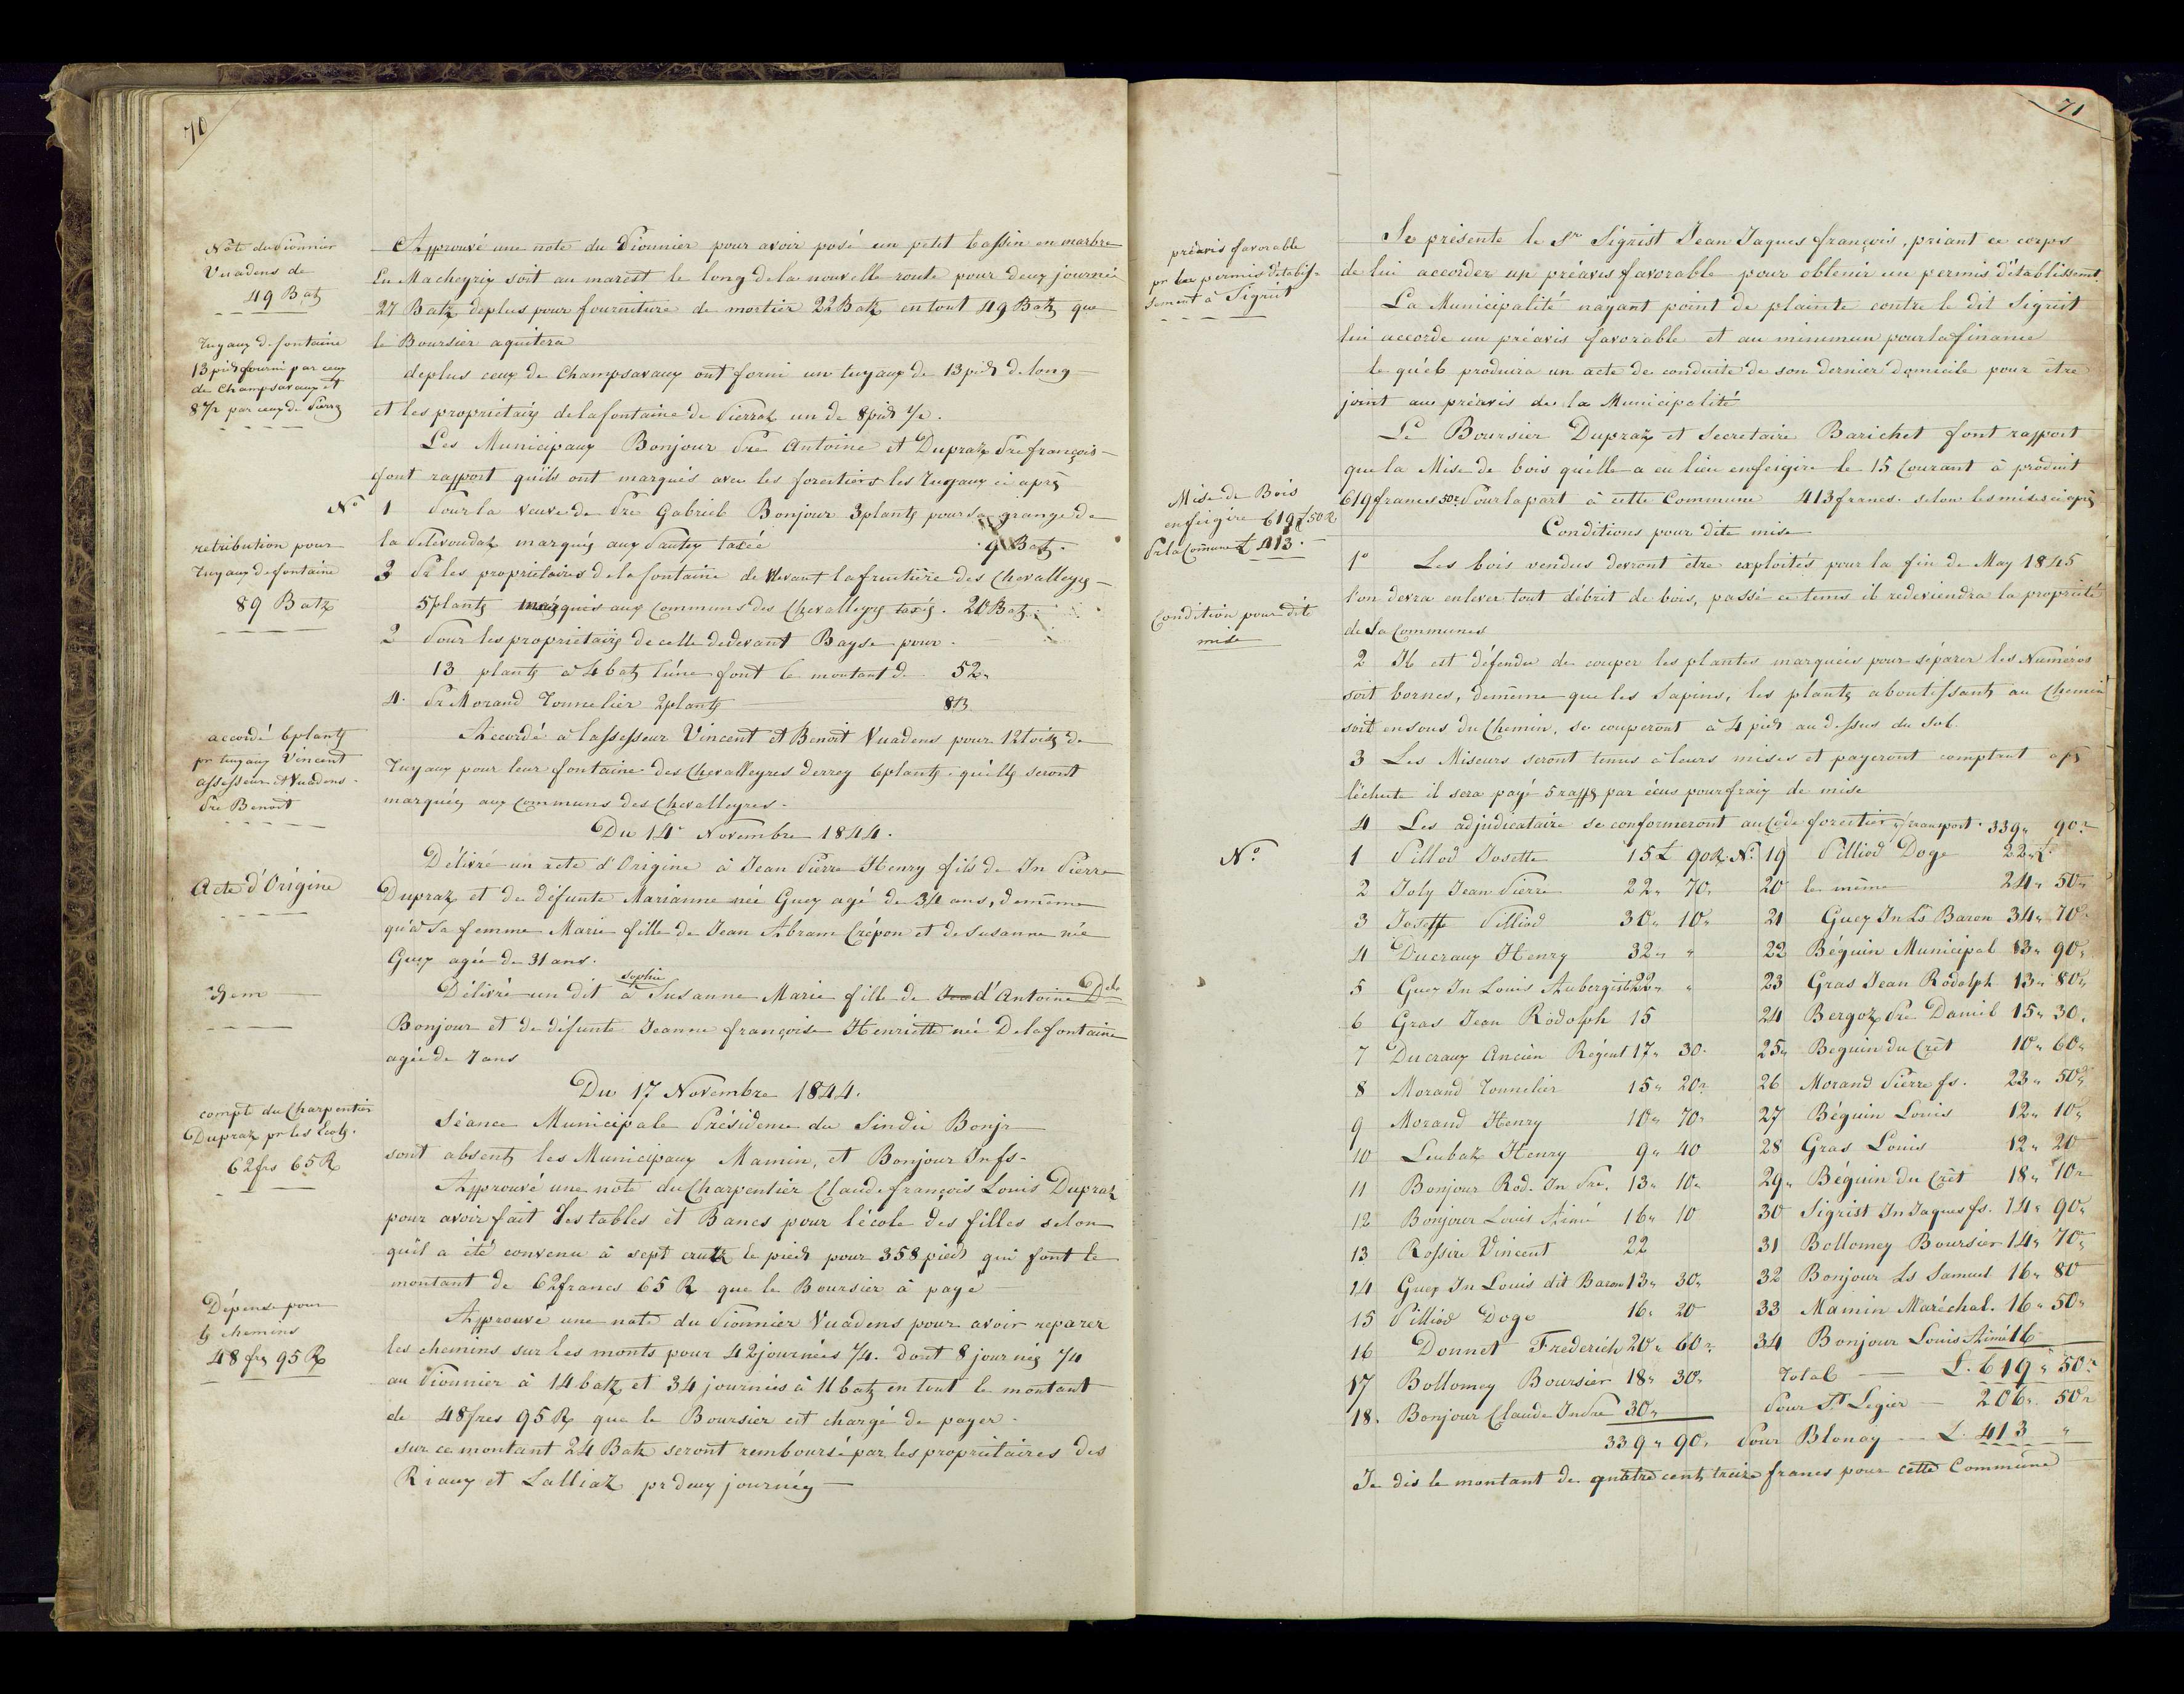 70
Note du Pionnier
Vuadens de
49 Batz
Approuvé une note du Pionnier pour avoir posé un petit bassin en marbre
En Macheyrix soit au marest le long de la nouvelle route pour deux journée
27 Batz deplus pour fourniture de mortier 22 Batz en tout 49 Batz que
le Boursier aquitera
Tuyaux de fontaine
13 pieds fourni par ceux
de Champsavaux et
8 1/2 par ceux de Pierraz
deplus ceux de Champsavaux ont forni un tuyaux de 13 pieds de long
et les propriétaires de la fontaine de Pierraz un de 8 pieds 1/2.
Les Municipaux Bonjour Pre Antoine et Dupraz Pre françois
font rapport qu'ils ont marqués avec les forestiers les Tuyaux ci après
No 1 Pour la veuve de Pre Gabriel Bonjour 3 plantes pour sa grange de
la marqués aux taxée 9 Batz.
retribution pour
Tuyaux de fontaine
89 Batz
3 Pr les propriétaires de la fontaine de devant la fruitière des Chevalleyres
5 plantes marqués aux communs des Chevalleyres taxés. 20 Batz.
2 Pour les propriétaires de celle de devant Bayse pour
13 plantes à 4 batz l'une font le montant de 52"
4. Pr Morand Tonnelier 2 plantes 8 B
accordé 6 plantes
pr tuyaux Vincent
assesseur et Vuadens
Pre Benoit
Accordé à l'assesseur Vincent et Benoit Vuadens pour 12 toises de
Tuyaux pour leur fontaine des Chevalleyres derrey 6 plantes qu'elles seront
marquées aux communs des Chevalleyres.
Du 14e Novembre 1844.
Acte d'Origine
Délivré un acte d'Origine à Jean Pierre Henry fils de Jn Pierre
Dupraz et de défunte Marianne née Guex agé de 34 ans, demême
qu'à sa femme Marie fille de Jean Abram Crépon et de Susanne née
Guex agée de 31 ans.
Idem
Délivré un dit à Sophie Susanne Marie fille de d'Antoine Dd
Bonjour et de défunte Jeanne françoise Henriette née Delafontaine
agée de 7 ans
Du 17 Novembre 1844.
compte du Charpentier
Dupraz pr les Ecoles.
62 frs 65 R
Séance Municipale Présidence du Sindic Bonjr
sont absents les Municipaux Mamin, et Bonjour Jn fs
Approuvé une note du Charpentier Claude françois Louis Dupraz
pour avoir fait les tables et Bancs pour l'école des filles selon
qu'il a été convenu à sept crutz le pieds pour 358 pieds qui font le
montant de 62 francs 65 R que le Boursier à payé
Dépense pour
les chemins
48 frs 95 R
Approuvé une note du Pionnier Vuadens pour avoir reparer
les chemins sur les monts pour 42 journées 1/4. dont 8 journées 1/4
au Pionnier à 14 batz et 34 journées à 11 batz en tout le montant
de 48 fres 95 R que le Boursier est chargé de payer.
sur ce montant 24 Batz seront remboursé par les propriétaires des
Riaux et Lalliaz pr deux journées
71
préavis favorable
pr les permis d'établis-
sement à Sigrist
Se présente le Sr Sigrist Jean Jaques françois, priant ce corps
de lui accorder un préavis favorable pour obtenir un permis d'établissemt
La Municipalité n'ayant point de plainte contre le dit Sigrist
lui accorde un préavis favorable et au minimun pour la finance
le qu'el produira un acte de conduite de son dernier domicile pour être
joint au préavis de la Municipalité
Le Boursier Dupraz et Secretaire Barichet font rapport
que la Mise de bois qu'elle a eu lieu enfeigire le 15 Courant à produit
619 francs 50 r Pour la part à cette Commune 413 francs. selon les mises ci après
Mise de Bois
enfeigire 619 £ 50 R
Pr la Commune £ 413.
Conditions pour dite mise
1o Les bois vendus devront être exploités pour la fin de May 1845
l'on devra enlever tout débrit de bois, passé ce tems il redeviendra la propriété
de la Communes
Condition pour dit
mise
2 Il est défendu de couper les plantes marquées pour séparer les Numéros
soit bornes, demême que les Sapins, les plantes aboutissants au Chemin
soit en sous du Chemin, se couperont à 4 pieds au dessus du sol.
3 Les Miseurs seront tenus à leurs mises et payeront comptent après
l'échute il sera payé 5 rapps par écus pour fraix de mise
4 Les adjudicataire se conformeront au Code forestier, transport. 339" 90 r
No. 1 Pilliod Josette 15 £ 90 R. No. 19 Pilliod Doge 22 " £
2 Joly Jean Pierre 22 " 70 " 20 le même 24 " 50 "
3 Joseffe Pilliod 30 " 10 " 21 Guex Jn Ls Baron 34 " 70 "
4 Ducraux Henry 32 " " 22 Béguin Municipal 13 " 90 "
5 Guex Jn Louis Aubergiste 22 " " 23 Gras Jean Rodolph 13 " 80 "
6 Gras Jean Rodolph 15 24 Bergoz Pre Daniel 15 " 30 "
7 Ducraux Ancien Régent 17 " 30 " 25 " Beguin du Crêt 10 " 60 "
8 Morand Tonnelier 15 " 20 " 26 Morand Pierre fs. 23 " 50 "
9 Morand Henry 10 " 70 " 27 Béguin Louis 12 " 10 "
10 Leubaz Henry 9 " 40 28 Gras Louis 12 " 20
11 Bonjour Rod. Jn Pre. 13 " 10 " 29 " Béguin du Crêt 18 " 10 "
12 Bonjour Louis Aimé 16 " 10 30 Sigrist Jn Jaques fs. 14 " 90 "
13 Rossire Vincent 22 31 Bollomey Boursier 14 " 70 "
14 Guex Jn Louis dit Baron 13 " 30 " 32 Bonjour Ls Samuel 16 " 80
15 Pilliod Doge 16 " 20 33 Mamin Maréchal. 16 " 50 "
16 Donnet Frederich 20 " 60 " 34 Bonjour Louis Aimé 16
17 Bollomey Boursier 18 " 30 " Total L. 619 " 50 "
18. Bonjour Claude Jn Pre 30 " Pour St Légier 206 " 50 "
339 " 90 " Pour Blonay L. 413 "
Je dis le montant de quatre cents treize francs pour cette Commune